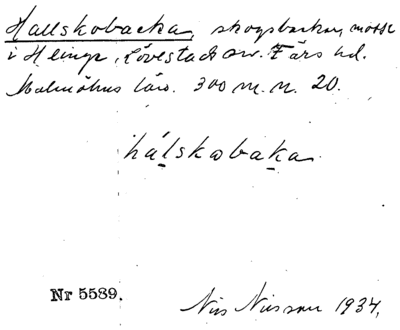 Hallskobacka, skogsbacke, mosse
i Hlinge, Lövestads sn. Färs hd.
Malmöhus län. 300 m. n. 20.
hálskobaka
Nr 5589.
Nils Nilsson 1934.